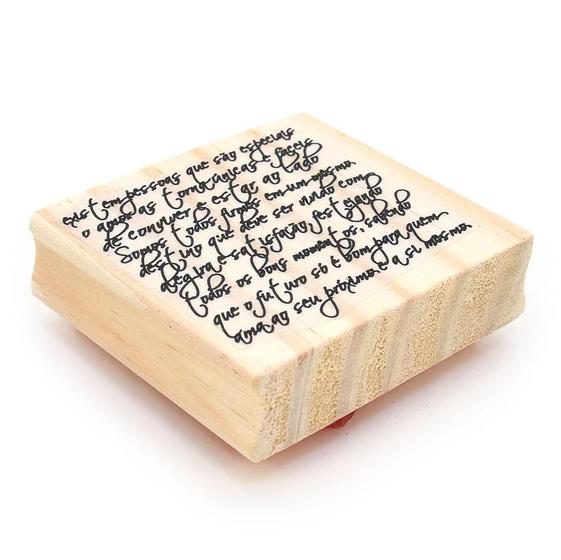 existem pessoas que são especiais
o amor as torna únicas e fáceis
de conviver e estar ao lado
Somos todos firmes em um mesmo
destino que deve ser unido com
alegria e satisfação, festejando
todos os bons momentos, sabendo
que o futuro só é bom para quem
ama ao seu próximo e a si mesmo.